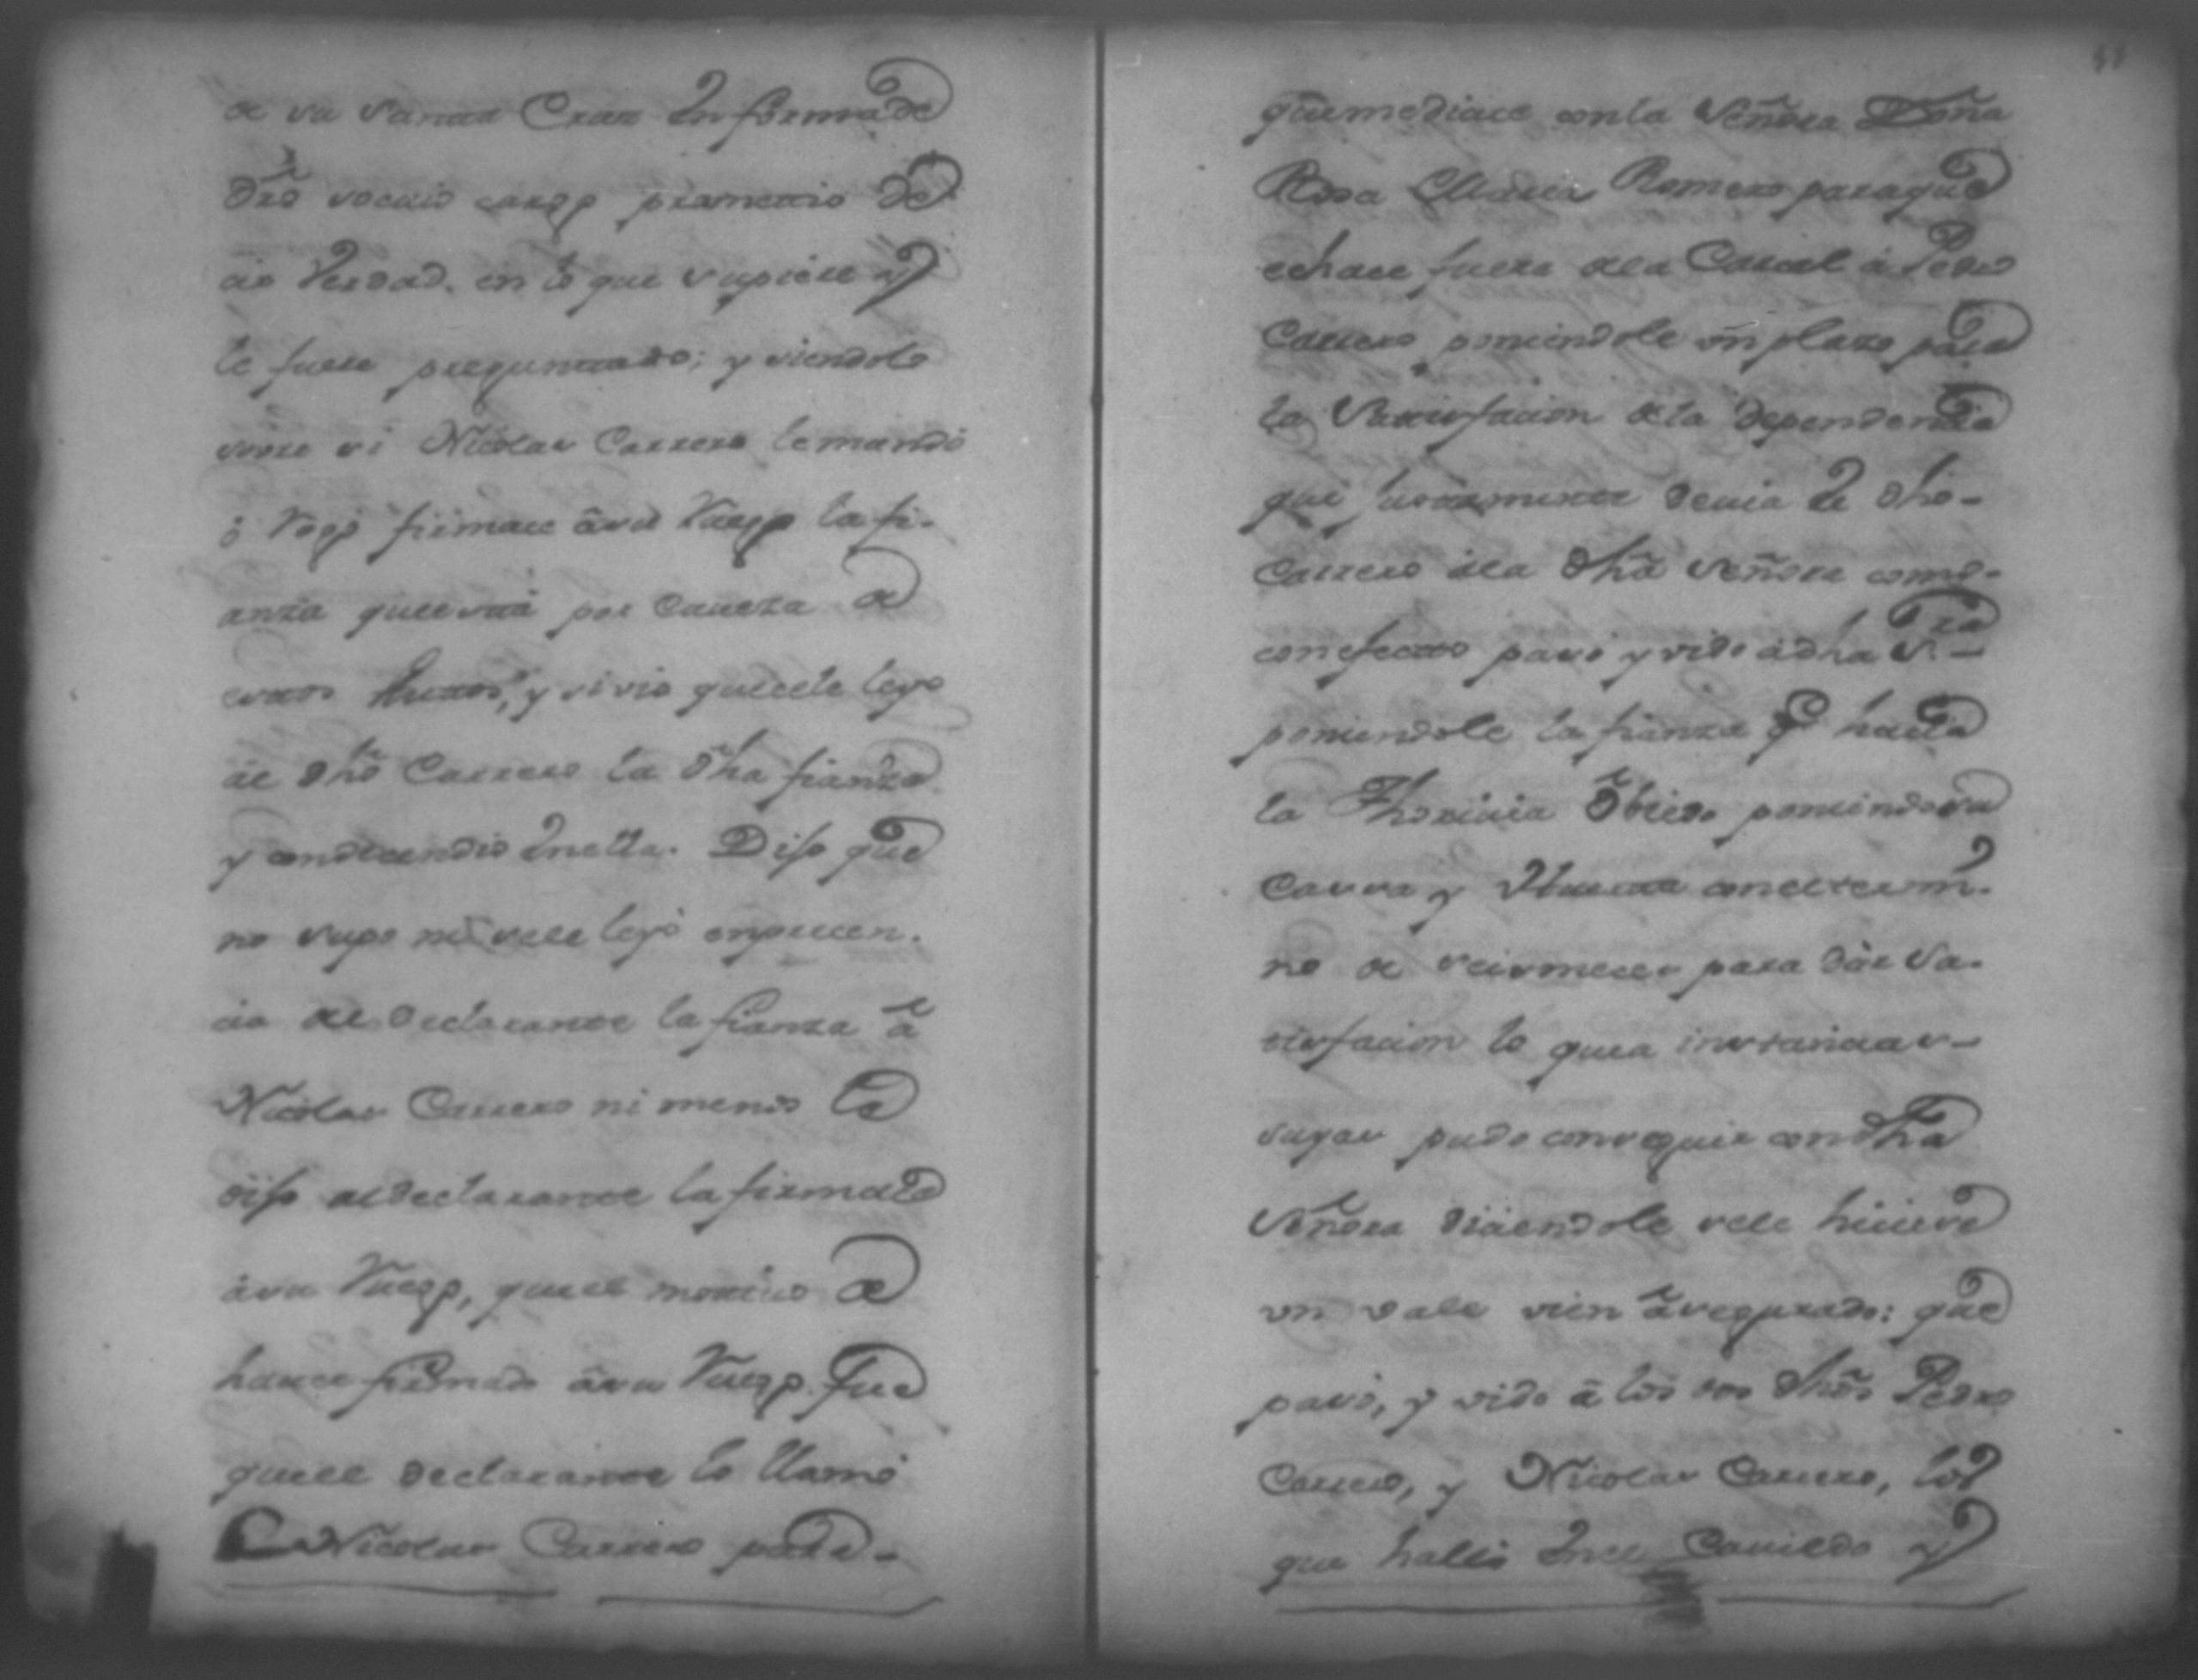 de su santa Cruz En forma de
dro̅ so cuio cargo prometio de
cir Verdad. en lo que supiese y
le fuese preguntado; y siendolo
sobre si Nicolas Carrero le mando
ò Rogò firmace âsu Ruego la fi-
anza que està por caueza de
estos Autos, y si vio que ce le leyo
ael dho̅ Carrero la dha fianza
y condecendio En ella. Dijo que
no supo ni se le leyò en precen-
cia del Declarante la fianza â
Nicolas Carrero ni menos le
dijo al declarante la firmace
âsu Ruego, que el motiuo de
hauer firmado âsu Ruego fue
que el declarante lo llamò
Nicolas Carrero para-
que mediace con la Señora Doña
Rosa Maria Romero para que
echace fuera de la Carcel à Pedro
Carrero poniendole un plazo para
la Satisfacion de la dependencia
que juntamente deuia el dho-
Carrero à la dha̅ Señora como-
con efecto pasò y vido à dha Sra-
poniendole la fianza q̅ hacia
la Thoriuia Obiedo poniendo su
Cassa y con el termi-
no de seis meces para dâr Sa-
tisfacion lo que a instancias-
suyas pudo conseguir con dha
Señora diciendole se le hiciese
un vale vien âsegurado: que
pasò, y vido â los dos dhõs Pedro
Carrero, y Nicolas Carrero, los
que hallò En el Cauildo y